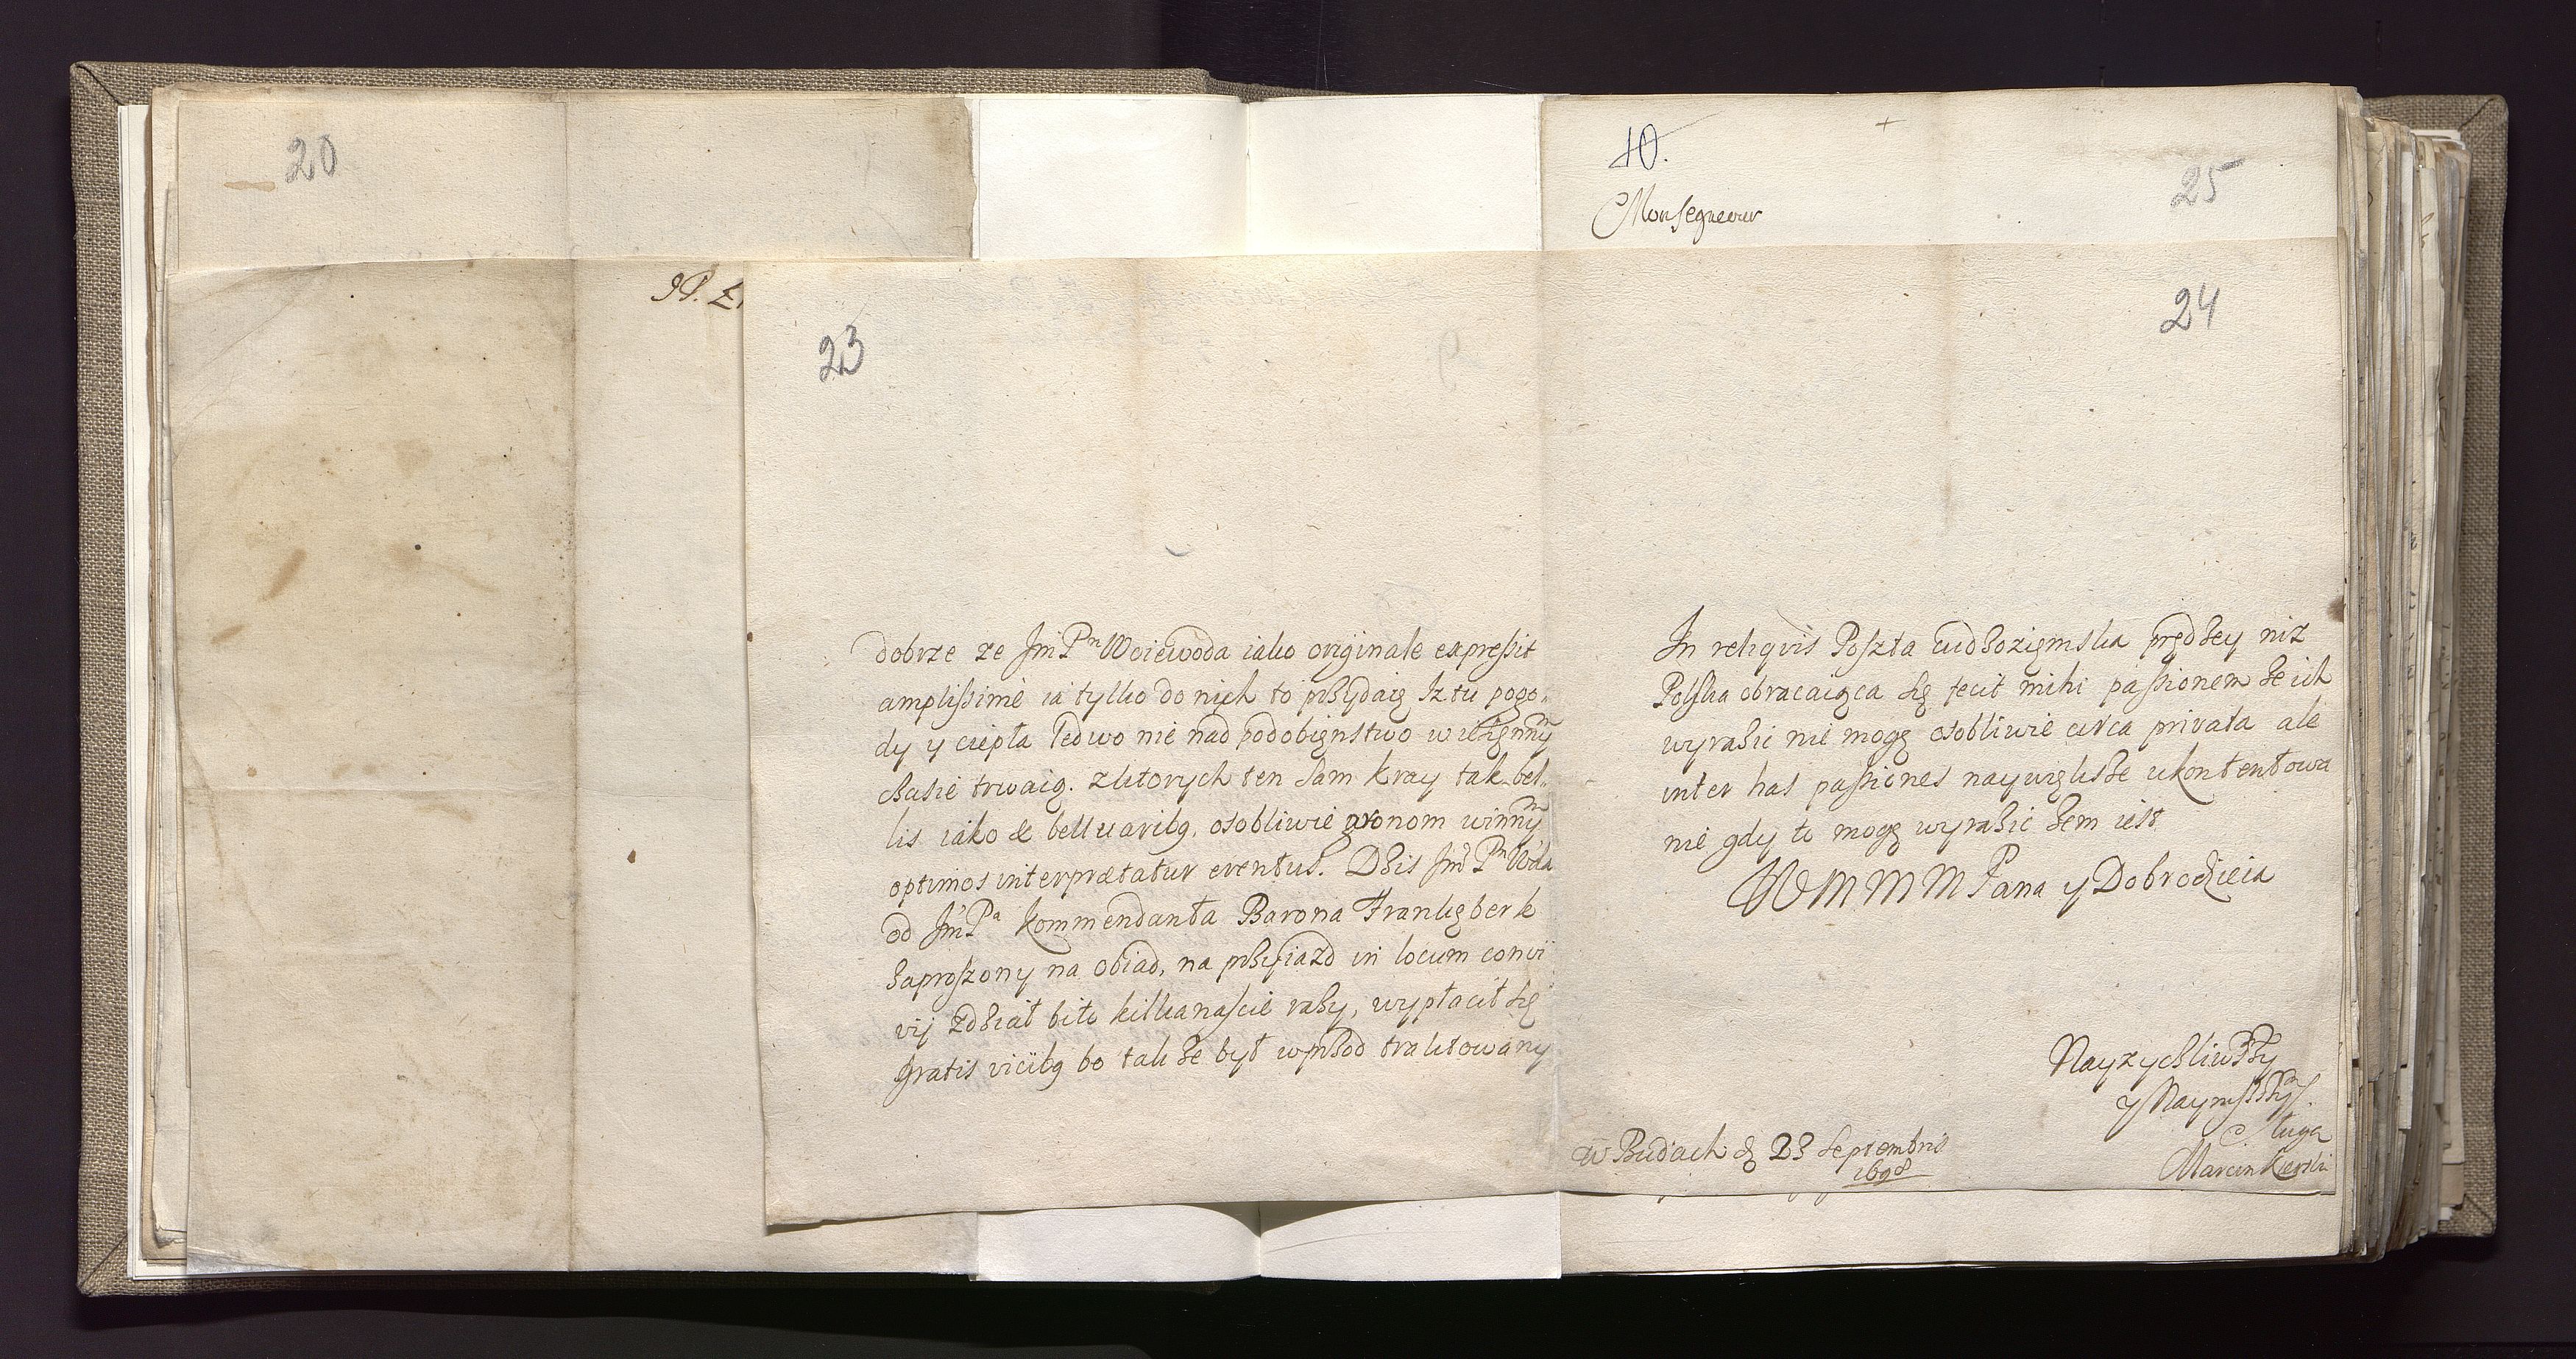 20
JP. Z
23
dobrze ze JmPⁿ Woiewoda iako originale expressit
amplissimè ia tylko do nich to przydaię Iz tu pogo-
dy y ciepła ledwo nie nad podobięnstwo w
czasie trwaią. z ktorych ten sam kray tak bel-
lis iako & osobliwie gronom winnym
optimos interpraetatur eventus. Dzis Jmć Pⁿ Wda
od JmPᵃ kommendanta Barona Frankęberk
zaproszony na obiad, na przyiazd in locum convi
vij zdział bito kilkanascie razy, wypłacił się
gratis bo takze był wprzod traktowany
10.
Monsegneour
25
24
In reliqvis Poszta cudzozięmska prędzey niz
Polska obracaiąca się fecit mihi passionem ze ich
wyrazic nie mogę osobliwie circa privata ale
inter has passiones naywiększe ukontentowa
nie gdy to mogę wyrazic zem iest.
WMMMPana y Dobrodzieia
Nayzyczliwszy
y
Sługa
Marcin Kierski
W Budach d 23 Septembris
1698